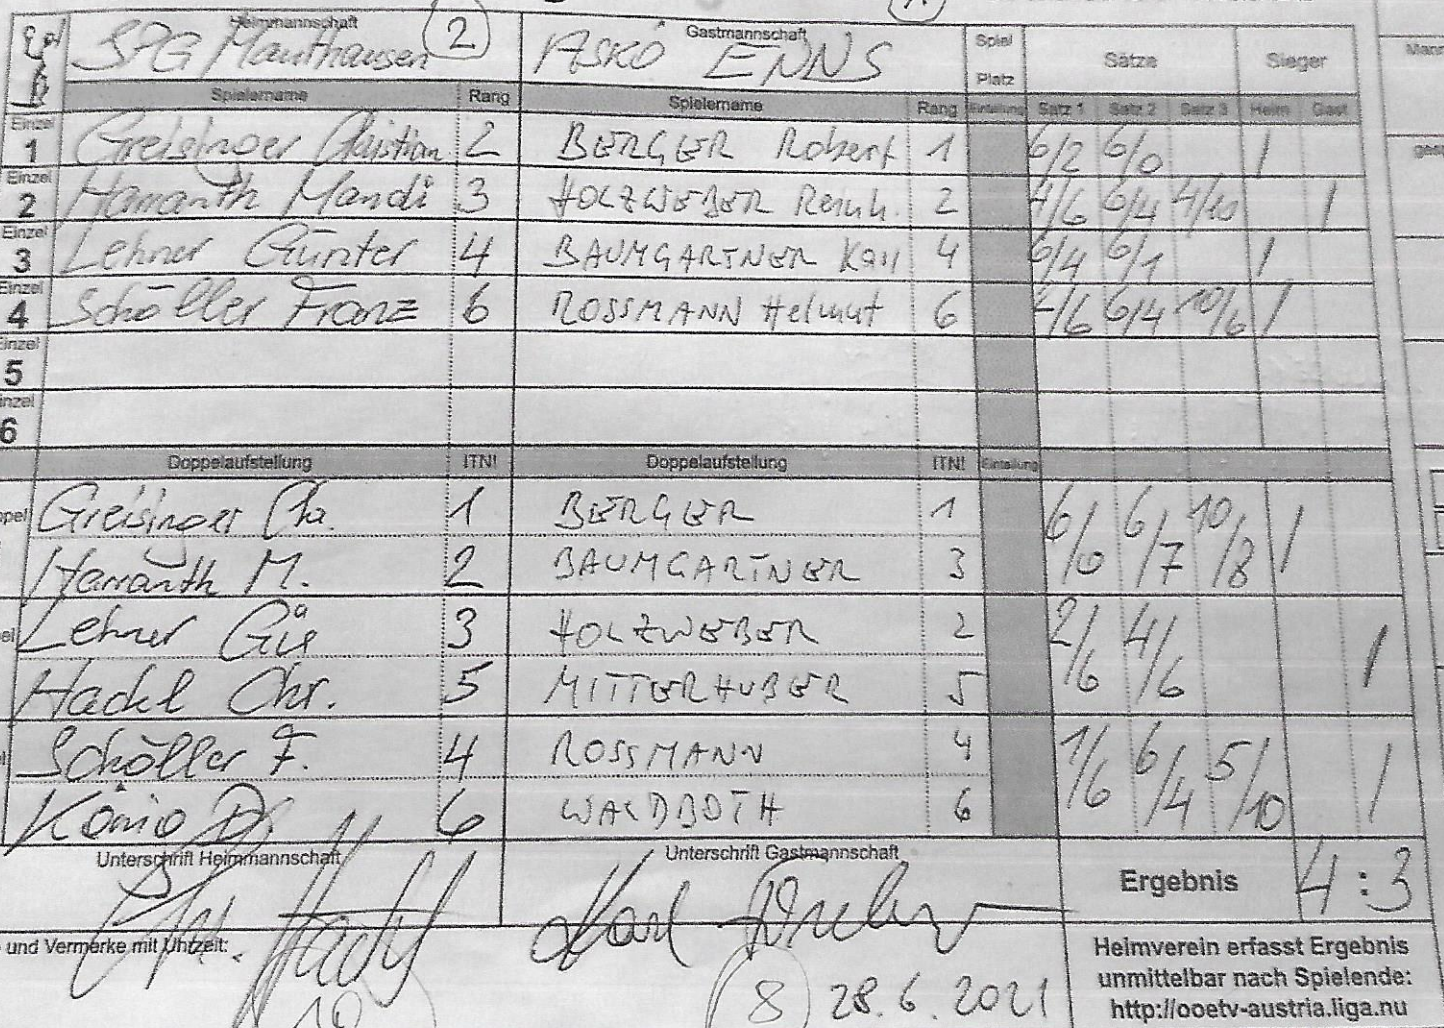 Heimmannschaft Gastmannschaft Spiel
SPG Mauthausen 2 ASKÖ ENNS Platz Sätze Sieger
Spielername Rang Spielername Rang Einteilung Satz 1 Satz 2 Satz 3 Heim Gast
Einzel 1 Greisinger Christian 2 BERGER Robert 1 6/2 6/0 1
Einzel 2 Harranth Mandi 3 HOLZWEBER Reinh. 2 4/6 6/4 4/10 1
Einzel 3 Lehner Günter 4 BAUMGARTNER Karl 4 6/4 6/1 1
Einzel 4 Schöller Franz 6 ROSSMANN Helmut 6 4/6 6/4 10/6 1
Einzel 5
inzel 6
Doppelaufstellung ITN! Doppelaufstellung ITN! Einteilung
ppel Greisinger Chr. 1 BERGER 1 6/0 6/7 10/8 1
Harranth M. 2 BAUMGARTNER 3
Lehner Gü 3 HOLZWEBER 2 2/6 4/6 1
Hackl Chr. 5 MITTERHUBER 5
Schöller F. 4 ROSSMANN 4 1/6 6/4 5/10 1
König 6 WALDBOTH 6
Unterschrift Heimmannschaft Unterschrift Gastmannschaft Ergebnis 4 : 3
und Vermerke mit Uhrzeit:
Heimverein erfasst Ergebnis
unmittelbar nach Spielende:
http://ooetv-austria.liga.nu
10 8 28.6.2021